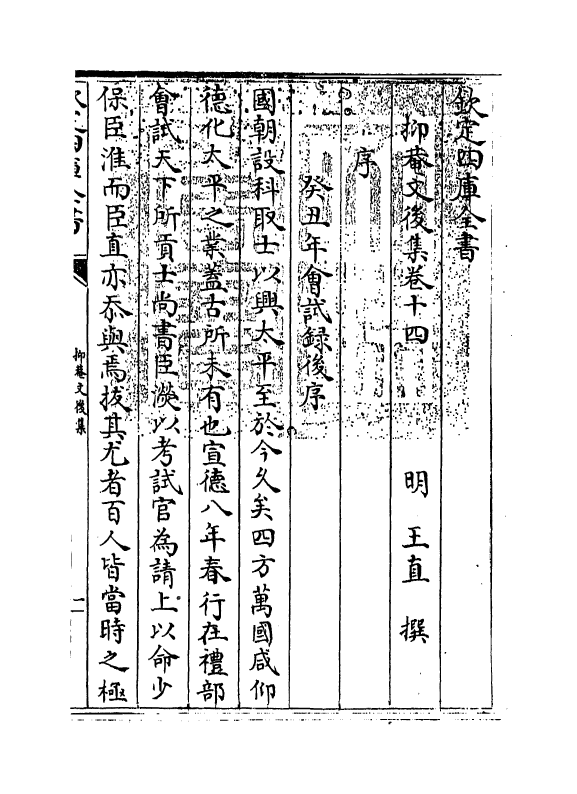 欽定四庫全書
抑菴文後集卷十四
明 王直 撰
序
癸丑年會試録後序
國朝設科取士以興太平至於今久矣四方萬國咸仰
德化太平之業蓋古所未有也宣德八年春行在禮部
會試天下所貢士尚書臣濙以考試官為請上以命少
保臣淮而臣直亦忝與焉拔其尤者百人皆當時之極
抑菴文後集
一